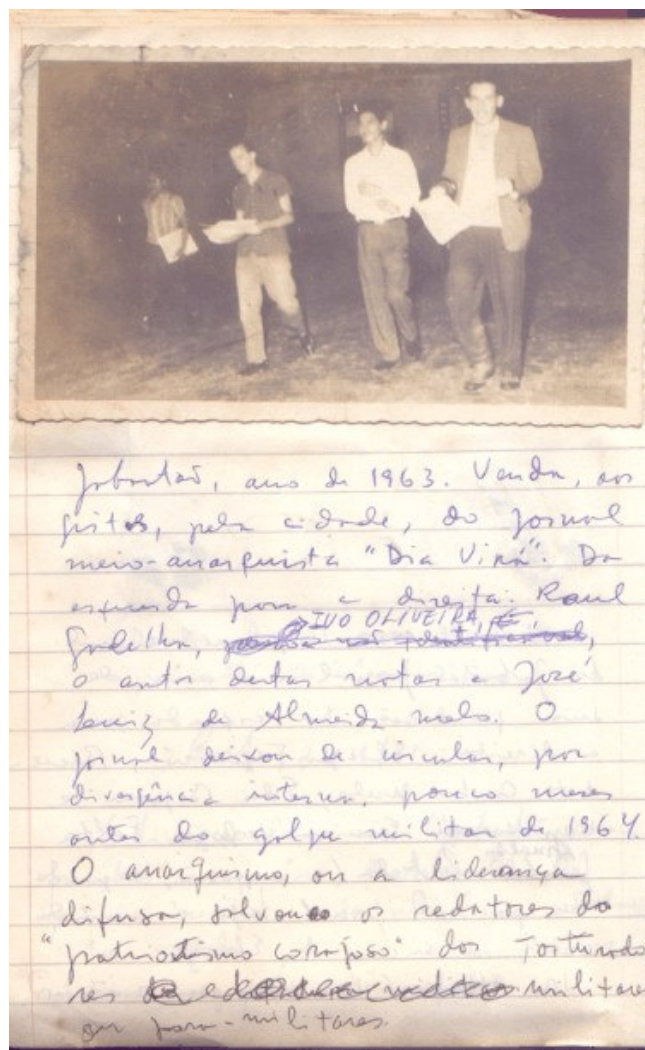 Jaboatão, ano de 1963. Venda, aos
gritos, pela cidade, do jornal
meio-anarquista "Dia Virá". Da
esquerda para a direita: Raul
IVO OLIVEIRA, E,
Godelha, pessoa não identificável,
o autor destas notas e José
Luiz de Almeida Melo. O
jornal deixou de circular, por
divergência interna, pouco meses
antes do golpe militar de 1964.
O anarquismo, ou a liderança
difusa, salvou os redatores do
"patriotismo corajoso" dos torturado
res militares
ou para-militares.